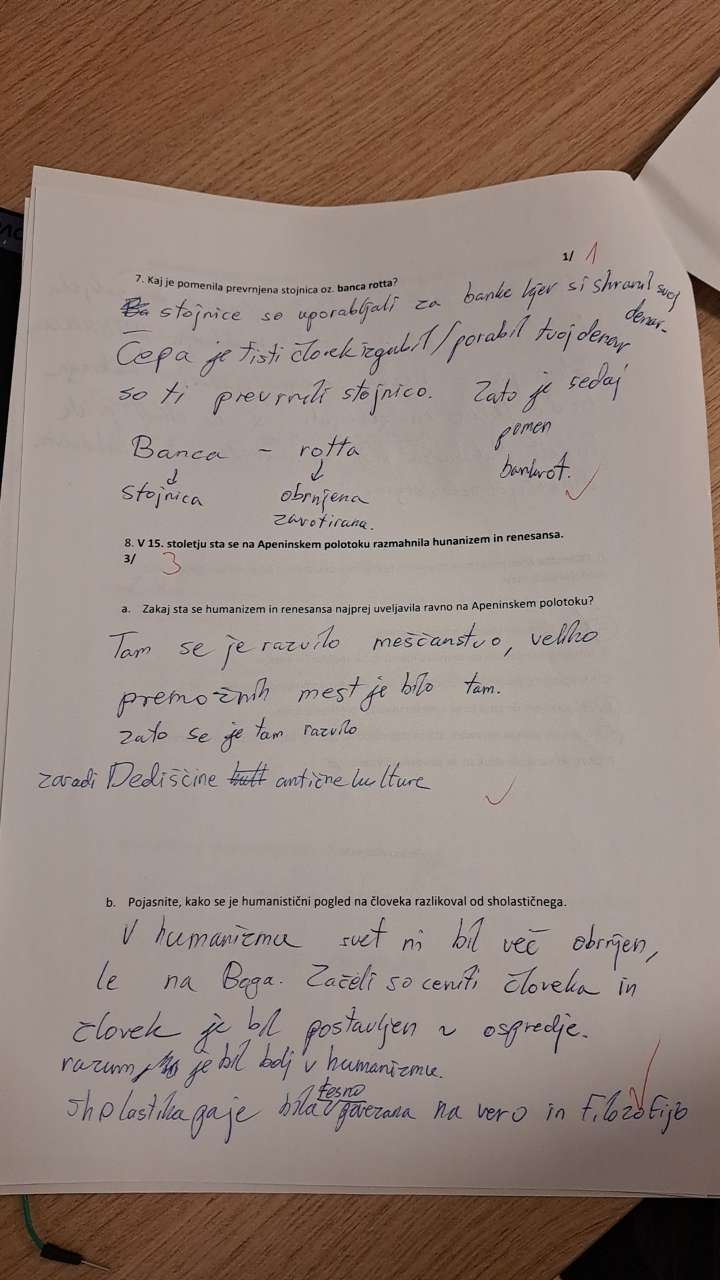 1/ 1
7. Kaj je pomenila prevrnjena stojnica oz. banca rotta?
stojnice so uporabljali za banke kjer si shranil svoj
denar.
Čepa je tisti človek izgubil/porabil tvoj denar
so ti prevrnili stojnico. Zato je sedaj
pomen
bankrot.
Banca - rotta
stojnica obrnjena
zarotirana.
8. V 15. stoletju sta se na Apeninskem polotoku razmahnila hunanizem in renesansa.
3/ 3
a. Zakaj sta se humanizem in renesansa najprej uveljavila ravno na Apeninskem polotoku?
Tam se je razvilo meščanstvo, veliko
premožnih mest je bilo tam.
zato se je tam razvilo
zaradi Dediščine antične kulture
b. Pojasnite, kako se je humanistični pogled na človeka razlikoval od sholastičnega.
V humanizmu svet ni bil več obrnjen,
le na Boga. Začeli so ceniti človeka in
človek je bil postavljen v ospredje.
razum je bil bolj v humanizmu.
Sholastika pa je bila tesno povezana na vero in filozofijo